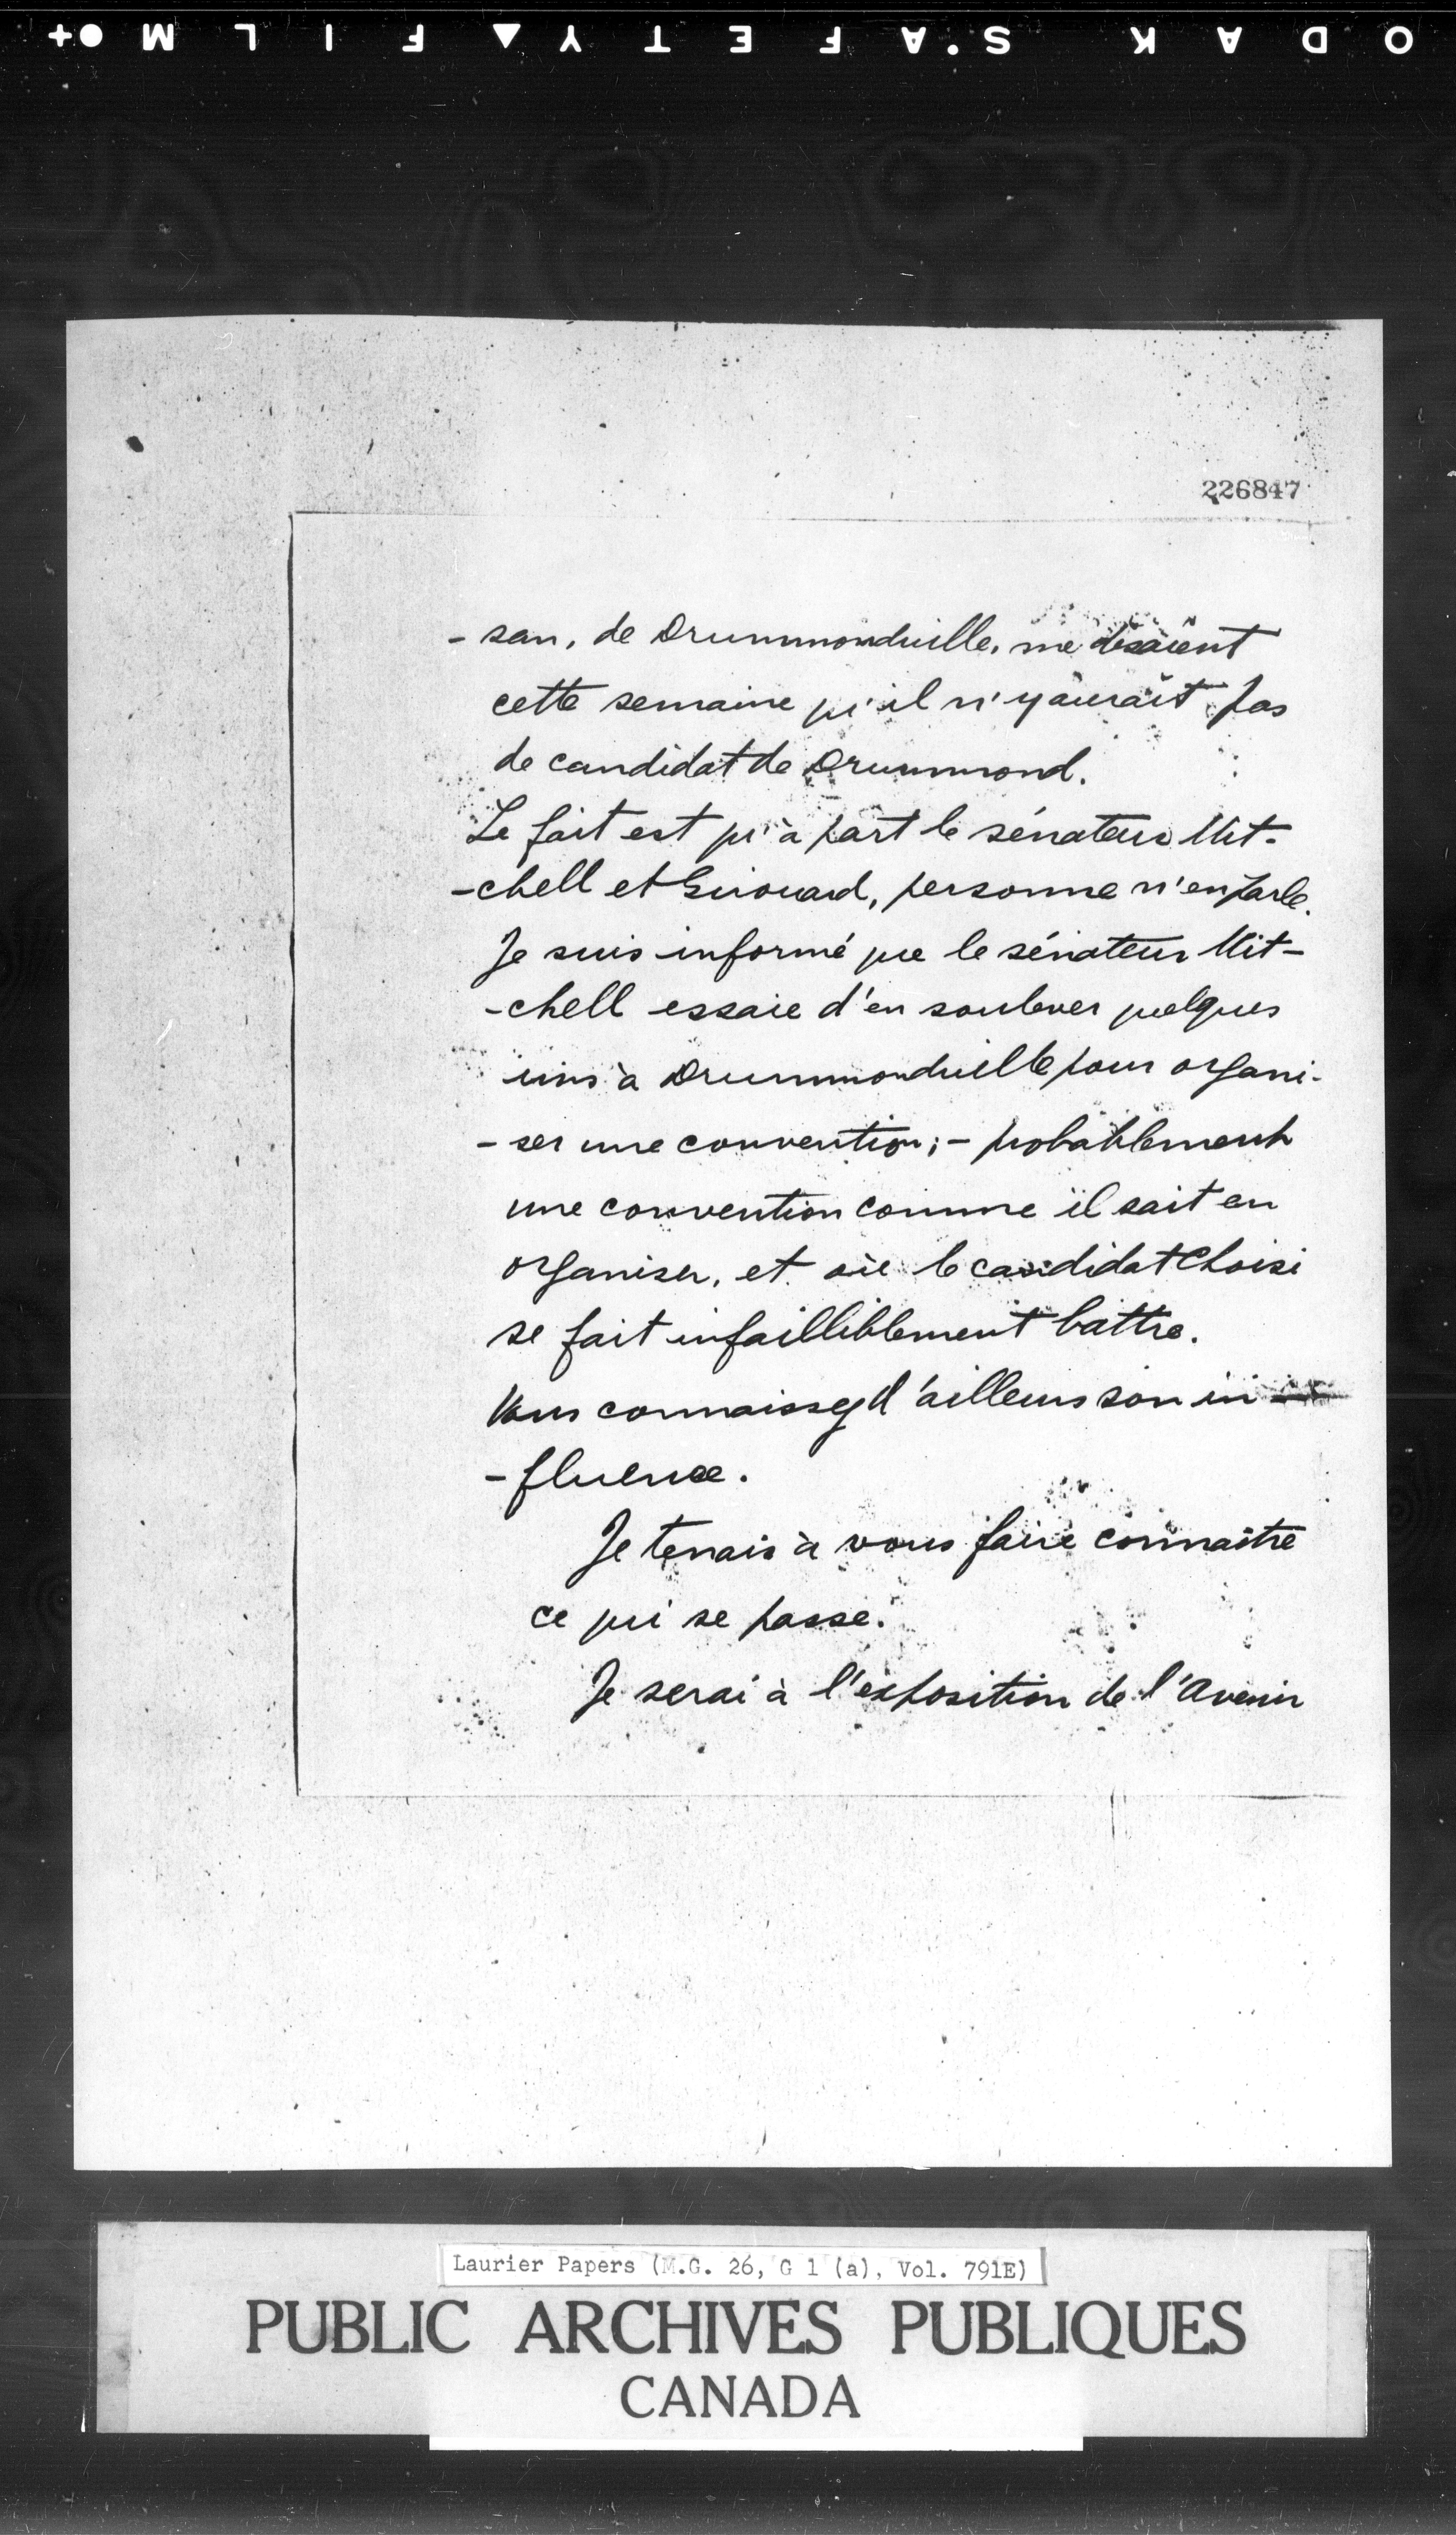 ODAK S'AFETY▲FILM●+
226847
- san, de Drummondville, me disaient
cette semaine qu'il n'y aurait pas
de candidat de Drummond.
Le fait est qu'à part le sénateur Mit-
-chell et Girouard, personne n'en parle.
Je suis informé que le sénateur Mit-
-chell essaie d'en soulever quelques
uns à Drummondville pour organi-
- ser une convention; - probablement
une convention comme il sait en
organiser, et où le candidat choisi
se fait infailliblement battre.
Vous connaissez d'ailleurs son in-
- fluence.
Je tenais à vous faire connaître
ce qui se passe.
Je serai à l'exposition de l'Avenir
Laurier Papers (M.G. 26, G 1 (a), Vol. 791E)
PUBLIC ARCHIVES PUBLIQUES
CANADA